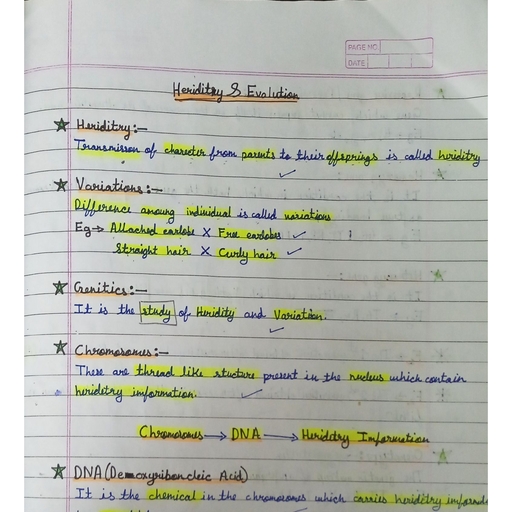 PAGE NO.
DATE
Heriditry & Evolution
☆ Heriditry:-
Transmisson of charecter from parents to their offsprings is called heriditry
☆ Variations:-
Difference amoung individual is called variations
Eg→ Attached earlobe X Free earlobes
Straight hair X Curly hair
☆ Genitics:-
It is the study of Heridity and Variation.
☆ Chromosomes:-
These are thread like stucture present in the nucleus which contain
heridetry information.
Chromosomes → DNA → Heriditry Information
☆ DNA (Deoxyriboncleic Acid)
It is the chemical in the chromosomes which carries heriditry